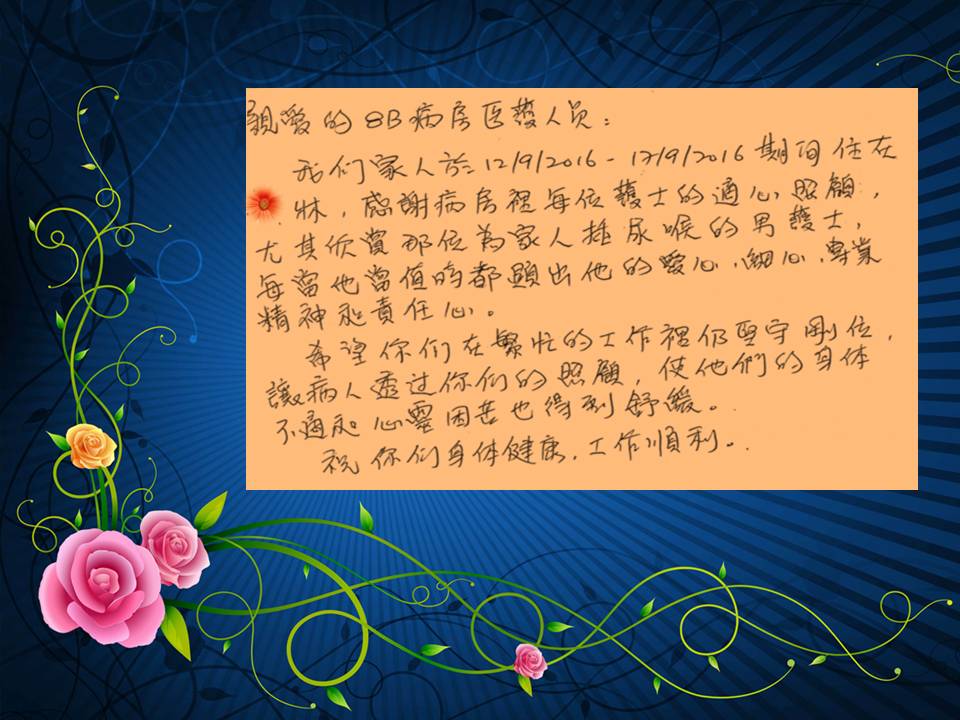 親愛的8B病房医護人员：
我们家人於12/9/2016-17/9/2016期间住在
牀，感謝病房裡每位護士的適心照顧，
尤其欣賞那位為家人插尿喉的男護士，
每當他當值時都顯出他的愛心、細心、專業
精神和責任心。
希望你们在繁忙的工作裡仍堅守剛位，
讓病人透过你们的照顧，使他們的身体
不適和心靈困苦也得到舒緩。
祝你们身体健康，工作順利。